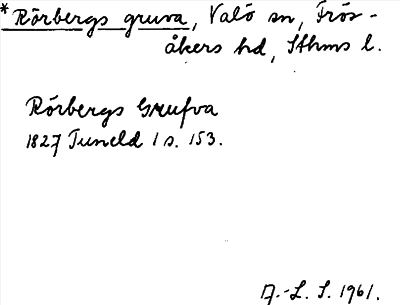 * Rörbergs gruva, Valö sn, Frös-
åkers hd, Sthms l.
Rörbergs Grufva
1827 Tuneld 1 s. 153.
D.-L. S. 1961.